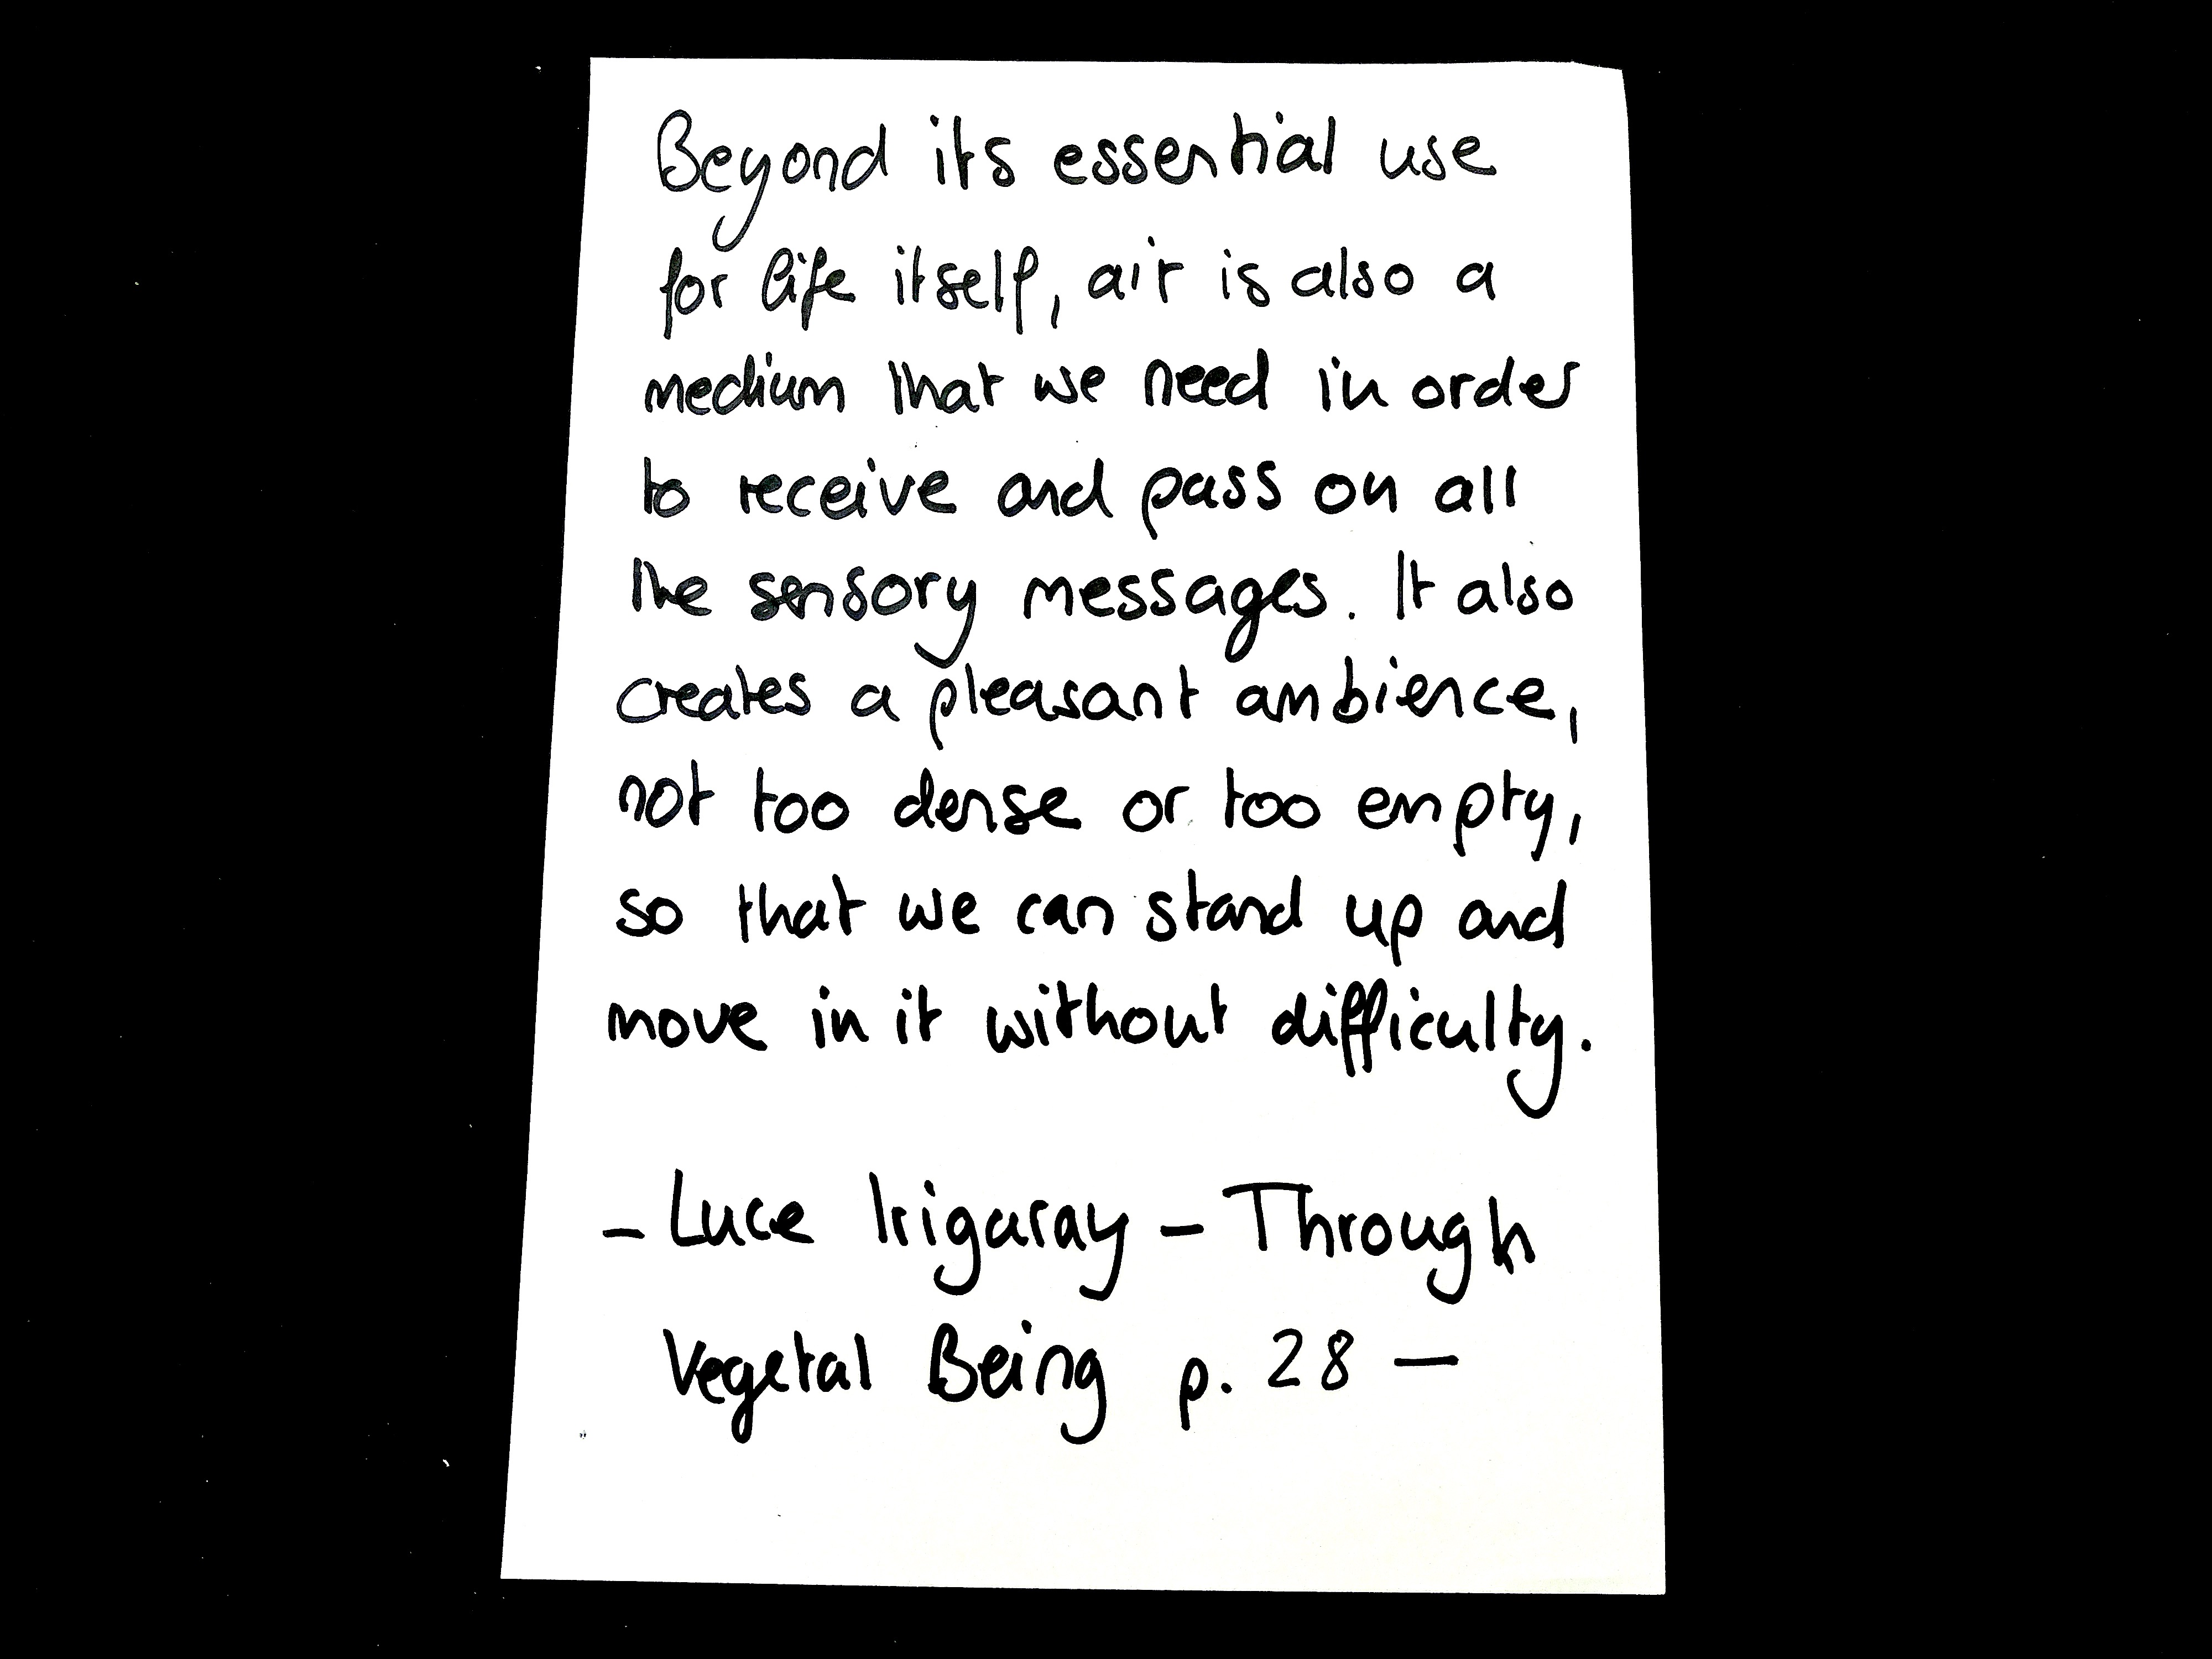 Beyond its essential use
for life itself, air is also a
medium that we need in order
to receive and pass on all
the sensory messages. It also
creates a pleasant ambience,
not too dense or too empty,
so that we can stand up and
move in it without difficulty.
- Luce Irigaray - Through
Vegetal Being p. 28 -